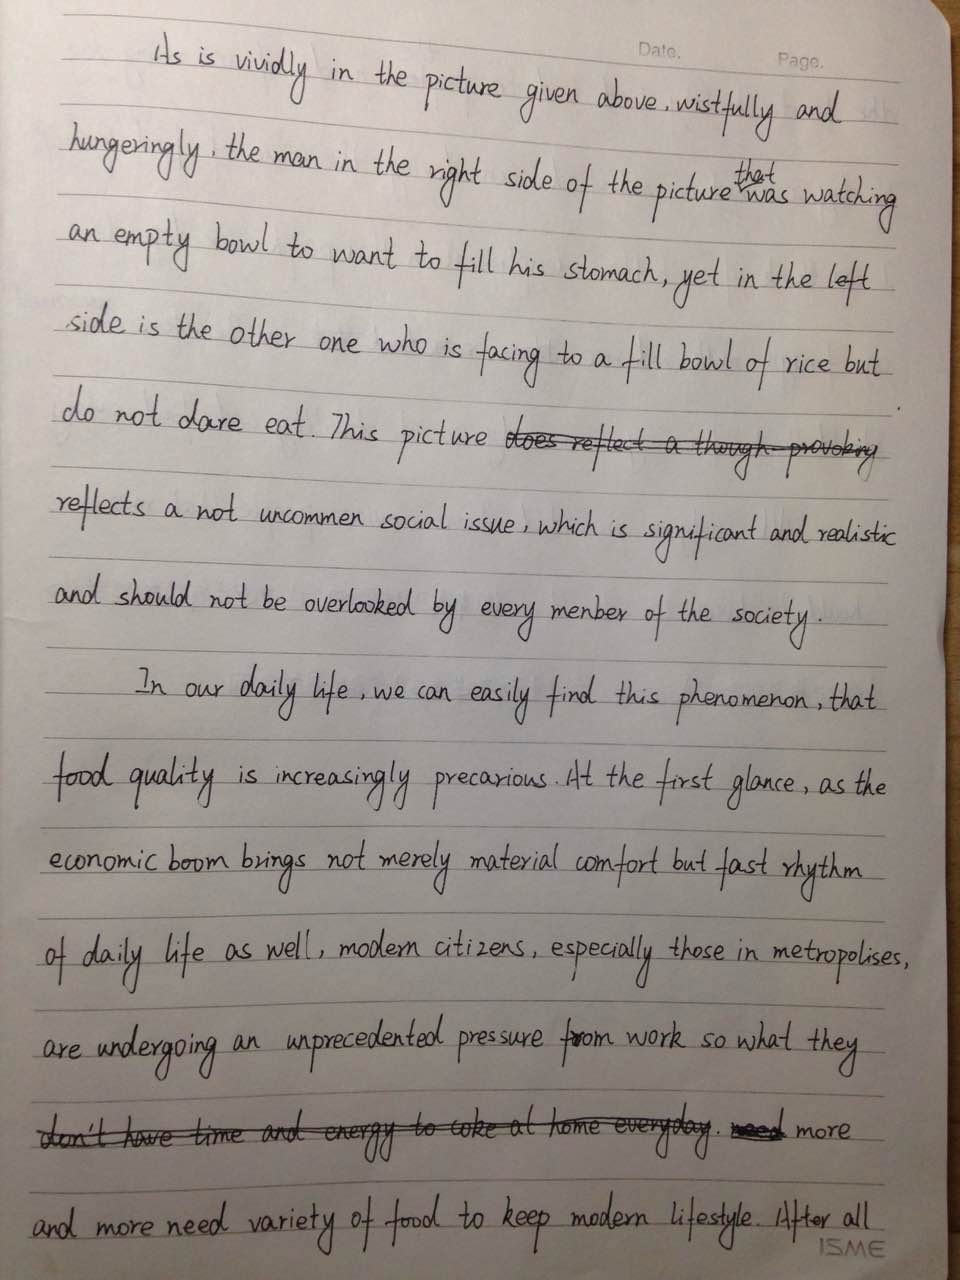 Date. Page.
As is vividly in the picture given above, wistfully and
hungeringly, the man in the right side of the picture that was watching
an empty bowl to want to fill his stomach, yet in the left
side is the other one who is facing to a fill bowl of rice but
do not dare eat. This picture does reflect a though-provoking
reflects a not uncommen social issue, which is significant and realistic
and should not be overlooked by every menber of the society.
In our daily life, we can easily find this phenomenon, that
food quality is increasingly precarious. At the first glance, as the
economic boom brings not merely material comfort but fast rhythm
of daily life as well, modern citizens, especially those in metropolises,
are undergoing an unprecedented pressure from work so what they
don't have time and energy to coke at home everyday. need more
and more need variety of food to keep modern lifestyle. After all
ISME